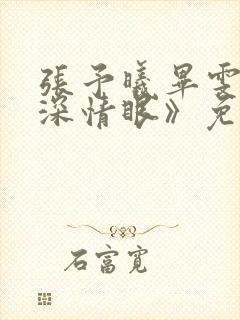 張予曦畢雯
深情眼》免
石富寬